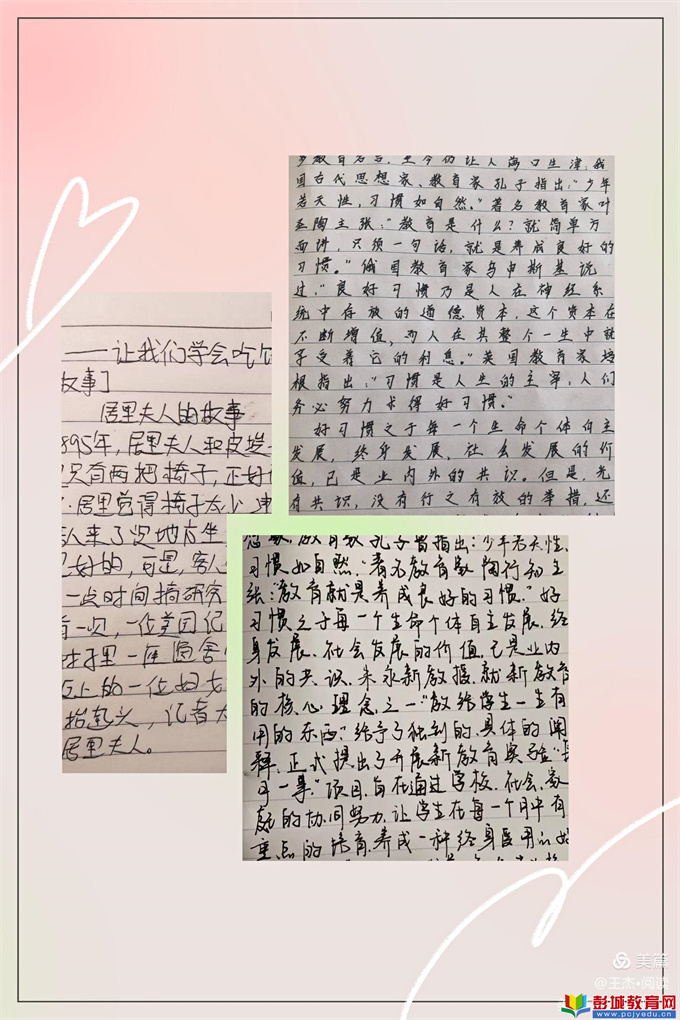 ——让我们学会吃饭
故事]
居里夫人的故事
895年,居里夫人和皮埃
只有两把椅子,正好
居里觉得椅子太少
人来了没地方坐
好的,可是,客人
一点时间搞研究
有一次,一位美国记
村子里一座渔舍
上的一位妇女
抬起头,记者大
居里夫人。
多教育名言,至今仍让人满口生津,我
国古代思想家、教育家孔子指出:“少年
若天性,习惯如自然。”著名教育家叶
圣陶主张:“教育是什么?就简单方
面讲,只须一句话,就是养成良好的
习惯。”俄国教育家乌申斯基说
过,“良好习惯乃是人在神经系
统中存放的道德资本,这个资本在
不断增值,而人在其整个一生中就
享受着它的利息。”英国教育家培
根指出:“习惯是人生的主宰,人们
务必努力求得好习惯。”
好习惯之于每一个生命个体自主
发展,终身发展、社会发展的价
值,已是业内外的共识。但是,光
有共识,没有行之有效的举措,还
想家,教育家孔子曾指出:少年若天性,
习惯如自然,”著名教育家陶行知主
张:“教育就是养成良好的习惯。”好
习惯之于每一个生命个体自主发展、终
身发展、社会发展的价值,已是业内
外的共识。朱永新教授,就新教育
的核心理念之一“教给学生一生有
用的东西”给予了独到的、具体的阐
释,正式提出了开展新教育实验“每
月一事”项目,旨在通过学校、社会、家
庭的协同努力,让学生在每一个月中有
重点的培育、养成一种终身受用的好
美篇
@王杰•阅读
彭城教育网
www.pcjyedu.cn